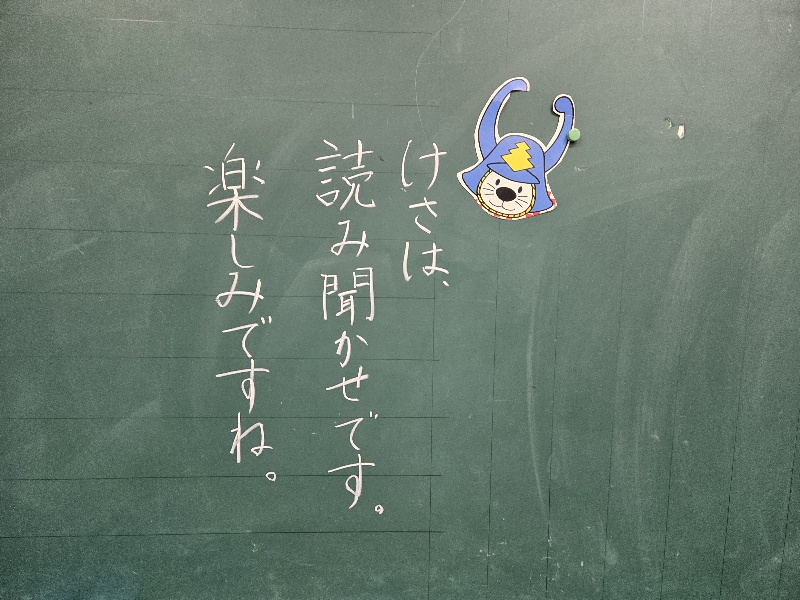 けさは、
読み聞かせです。
楽しみですね。